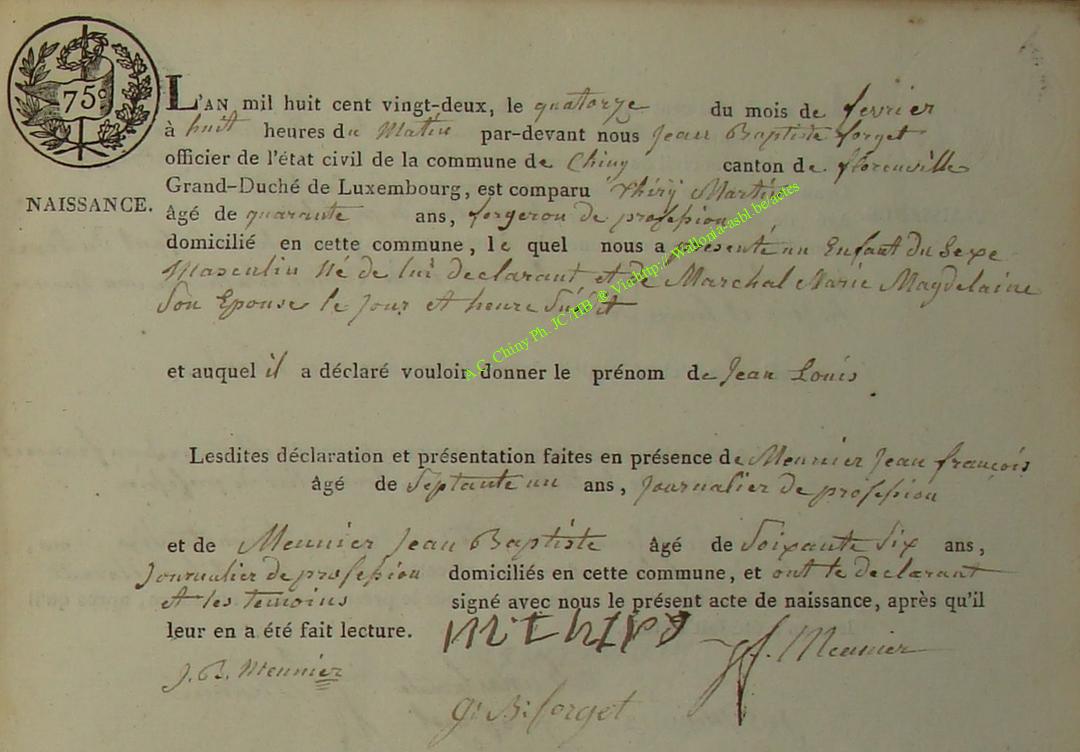 75c
L'AN mil huit cent vingt-deux, le quatorze du mois de fevrier
à huit heures du Matin par-devant nous Jean Baptiste forget
officier de l'état civil de la commune de Chiny canton de florenville
Grand-Duché de Luxembourg, est comparu Thiry Martin
NAISSANCE.
âgé de quarante ans, forgeron de profession
domicilié en cette commune, le quel nous a présenté un Enfant du Sexe
Masculin Né de lui declarant et de Marchal Marie Magdelaine
Son Epouse le Jour et heure Susdit
A.C. Chiny Ph. JC/HB ® Via-http://Wallonia-asbl.be/actes
et auquel il a déclaré vouloir donner le prénom de Jean Louis
Lesdites déclaration et présentation faites en présence de Meunier Jean françois
âgé de Septante un ans, Journalier de profession
et de Meunier Jean Baptiste âgé de Soixante Six ans,
Journalier de profession domiciliés en cette commune, et ont le declarant
et les temoins signé avec nous le présent acte de naissance, après qu'il
leur en a été fait lecture.
J. f. Meunier
J. B. Meunier
G: B: forget